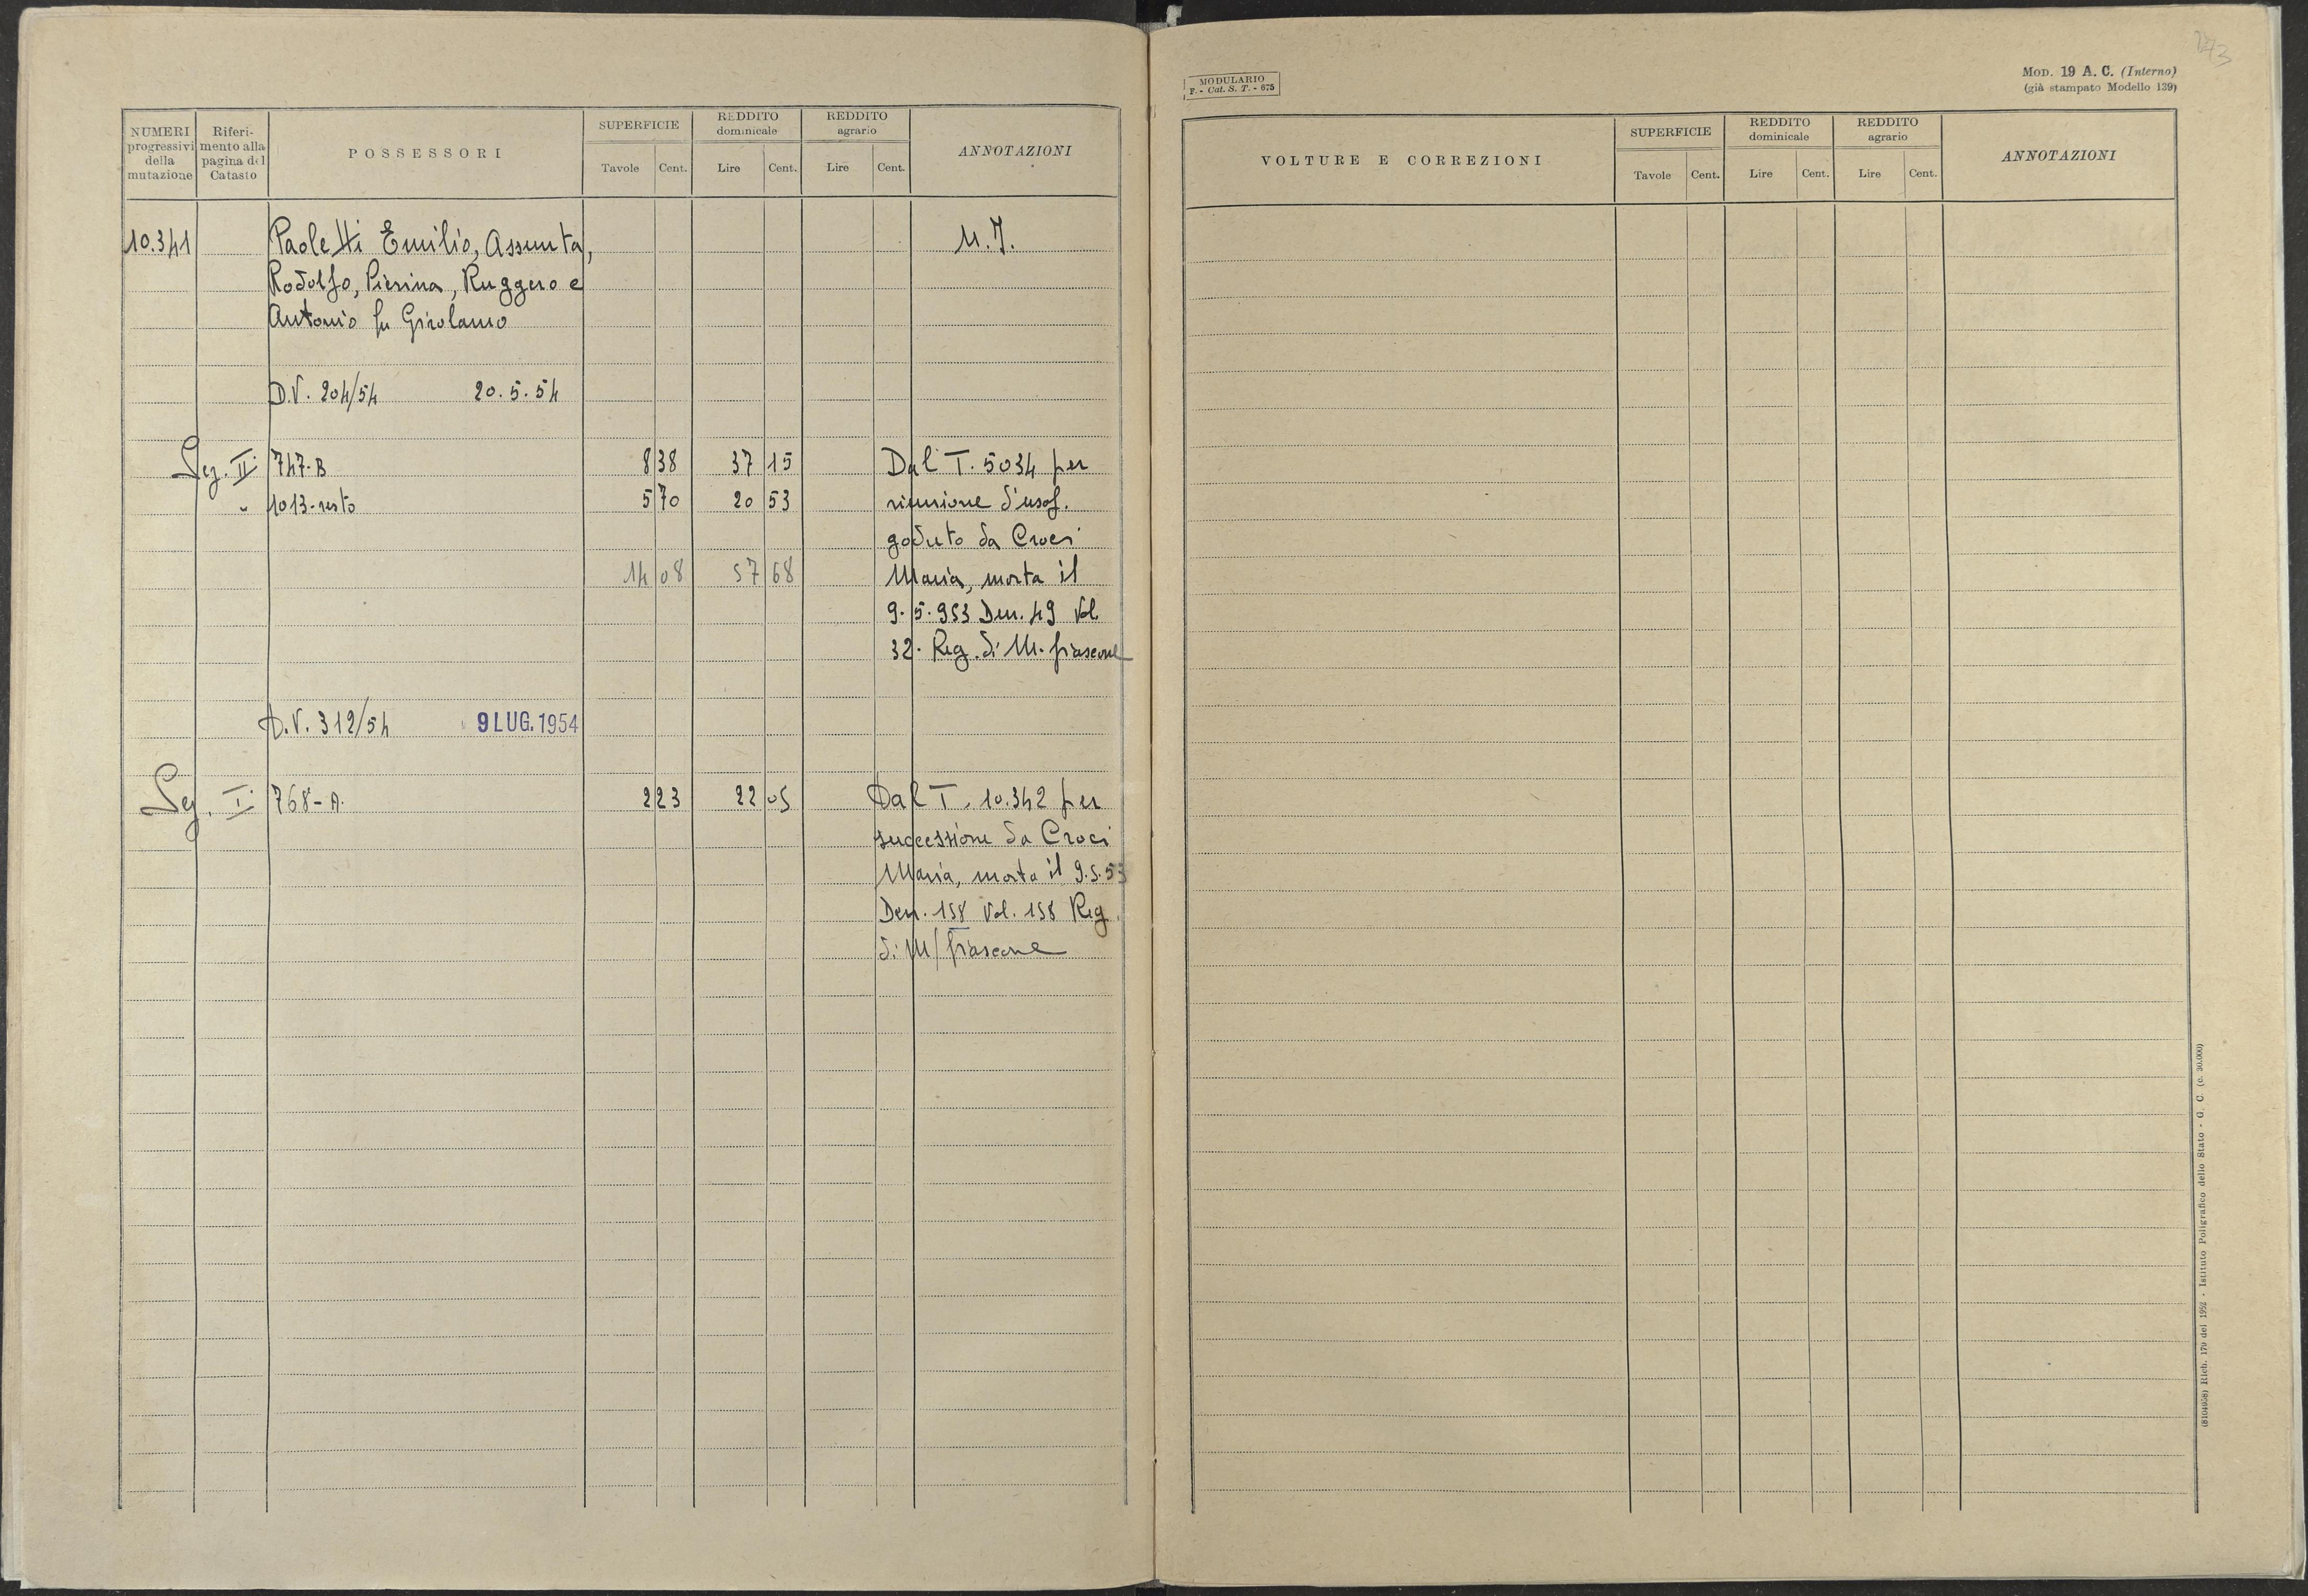 NUMERI progressivi della mutazione
Riferi- mento alla pagina del Catasto
POSSESSORI
SUPERFICIE
Tavole Cent.
REDDITO dominicale
Lire Cent.
REDDITO agrario
Lire Cent.
ANNOTAZIONI
10.341 Paoletti Emilio, Assunta,
Rodolfo, Pierina, Ruggero e
Antonio fu Girolamo
D.V. 204/54 20.5.54
Sez. II 747-B 8 38 37 15 Dal T. 5034 per
" 1013-resto 5 70 20 53 riunione d'usof.
goduto da Croci
14 08 57 68 Maria, morta il
9.5.953 Den. 49 Vol.
32. Reg. di M. fiascone
D.V. 312/54 9 LUG. 1954
Sez. I 768-A. 2 23 22 05 Dal T. 10.342 per
successione da Croci
Maria, morta il 9.5.53
Den. 158 Vol. 158 Reg.
di M/fiascone
MODULARIO
F. - Cat. S. T. - 675
MOD. 19 A. C. (Interno)
(già stampato Modello 139)
VOLTURE E CORREZIONI
SUPERFICIE
Tavole Cent.
REDDITO dominicale
Lire Cent.
REDDITO agrario
Lire Cent.
ANNOTAZIONI
Rich. 170 del 1952 - Istituto Poligrafico dello Stato - G. C. (c. 30.000)